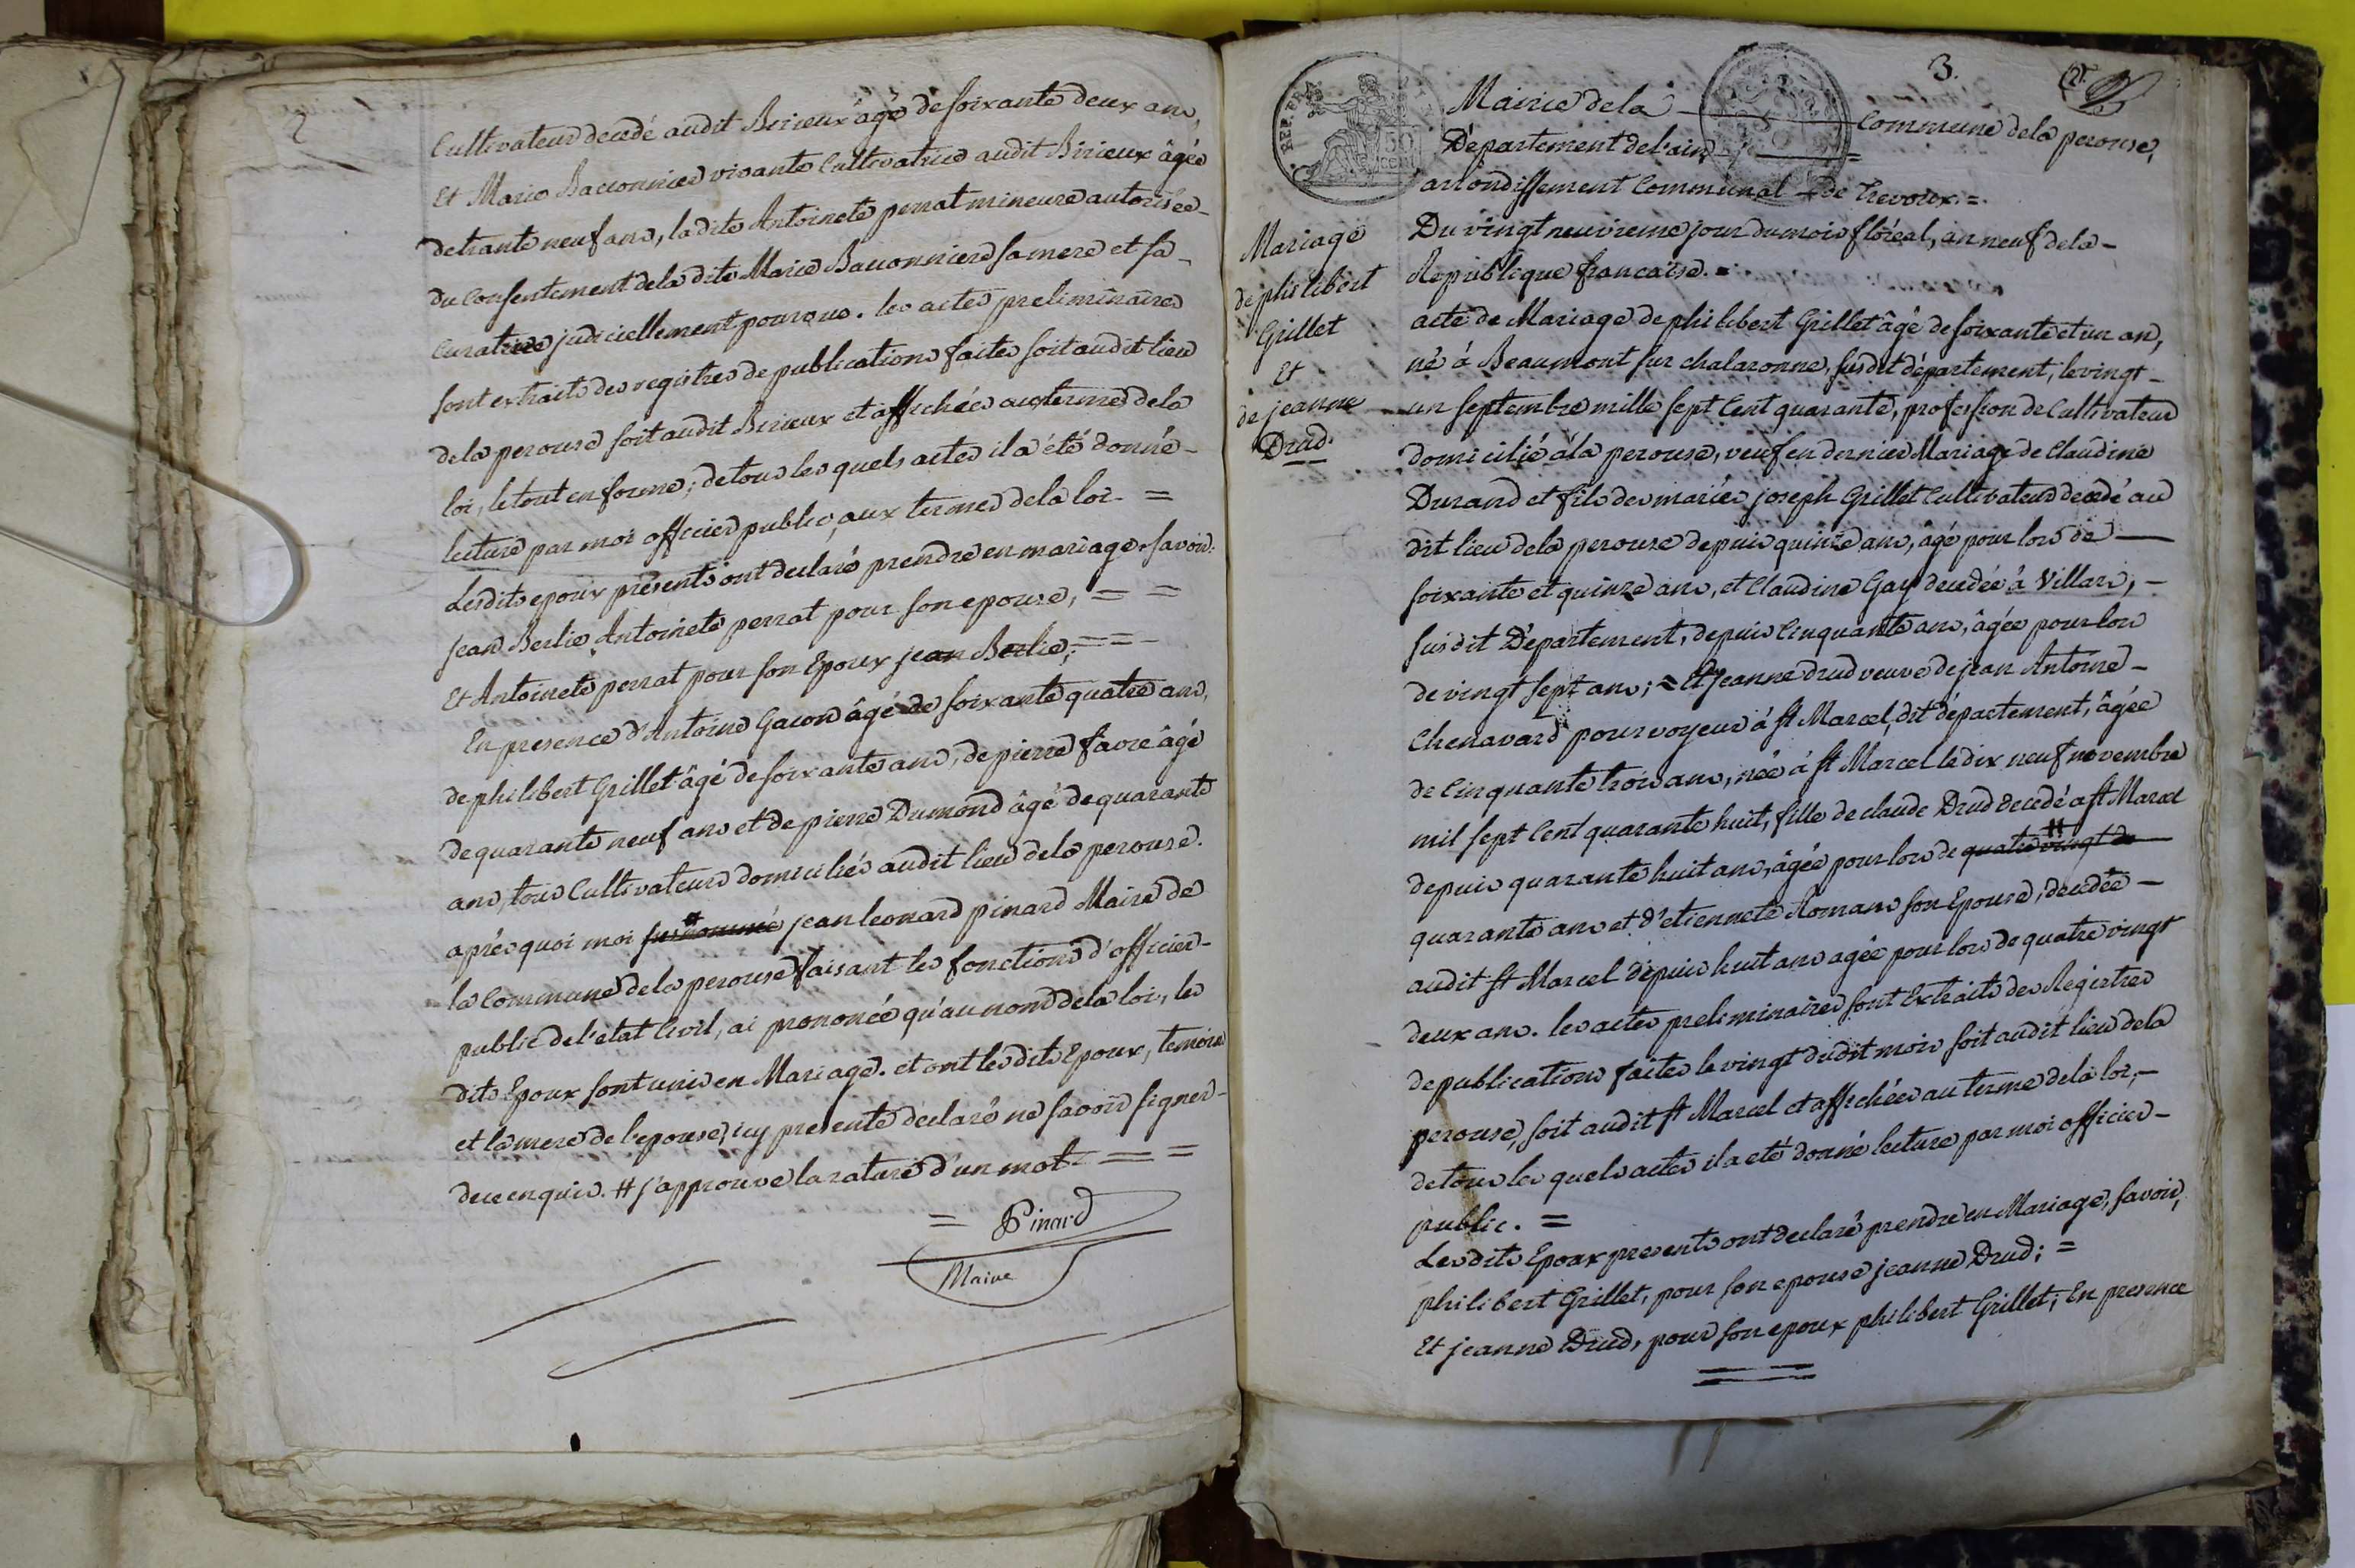 2
Cultivateur decedé audit Birieux âgé de soixante deux ans,
Et Marie Bacconnier vivante Cultivatrice audit Birieux âgée
de trante neuf ans, la dite Antoinete perrat mineure autorisée
du Consentement de la dite Marie Bacconnier sa mere et sa
Curatrice judiciellement pourvue. les actes preliminaires
sont extraits des registres de publications faites soit audit lieu
de la perouse soit audit Birieux et affichées aux termes de la
loi, le tout en forme; de tous les quels actes il a été donné
lecture par moi officier public, aux termes de la loi =
Lesdits epoux présents ont declaré prendre en mariage, savoir:
jean Berlie, Antoinete perrat pour son epouse, = =
Et Antoinete perrat pour son Epoux jean Berlie; = =
En presence d'Antoine Gacon âgé de soixante quatre ans,
de philibert Grillet âgé de soixante ans, de pierre favre âgé
de quarante neuf ans et de pierre Dumond âgé de quarante
ans, tous Cultivateurs domiciliés audit lieu de la perouse.
après quoi moi susnommé # jean leonard pinard Maire de
la Commune de la perouse faisant les fonctions d'officier
public de l'etat Civil, ai prononcé qu'au nom de la loi, les
dits Epoux sont unis en Mariage. et ont les dits Epoux, temoins
et la mere de l'epouse, icy presente declaré ne savoir signer
de ce enquis. # j'approuve la rature d'un mot = =
= Pinard
Maire
REP. FRA.
50
CENT
3.
Mairie de la Commune de la perouse,
Département de l'ain =
arrondissement Communal de Trevoux. =
Mariage
de philibert
Grillet
Et
de jeanne
Drud.
Du vingt neuvieme jour du mois floréal, an neuf de la
Republique francaise. =
acte de Mariage de philibert Grillet âgé de soixante et un an,
né à Beaumont sur chalaronne, susdit département, le vingt
un septembre mille sept Cent quarante, profession de Cultivateur
domicilié à la perouse, veuf en dernier Mariage de Claudine
Durand et fils des mariés joseph Grillet Cultivateur decedé au
dit lieu de la perouse depuis quinze ans, âgé pour lors de
soixante et quinze ans, et Claudine Gay decedée à Villars,
susdit Département, depuis Cinquante ans, âgée pour lors
de vingt sept ans; = Et jeanne drud veuve de jean Antoine
Chenavard pourvoyeur à st Marcel, dit département, âgée
de Cinquante trois ans, née à st Marcel le dix neuf novembre
mil sept Cent quarante huit, fille de claude Drud decedé a st Marcel
depuis quarante huit ans, âgée pour lors de quatre vingt de #
quarante ans et d'etiennete Romans son Epouse, decedée
audit st Marcel depuis huit ans agée pour lors de quatre vingt
deux ans. les actes preliminaires sont Extraits des Registres
de publications faites le vingt dudit mois soit audit lieu de la
perouse, soit audit st Marcel et affichées au terme de la loi,
de tous les quels actes il a eté donné lecture par moi officier
public. =
Lesdits Epoux presents ont declaré prendre en Mariage, savoir,
philibert Grillet, pour son epouse jeanne Drud; =
Et jeanne Drud, pour son epoux philibert Grillet; En presence